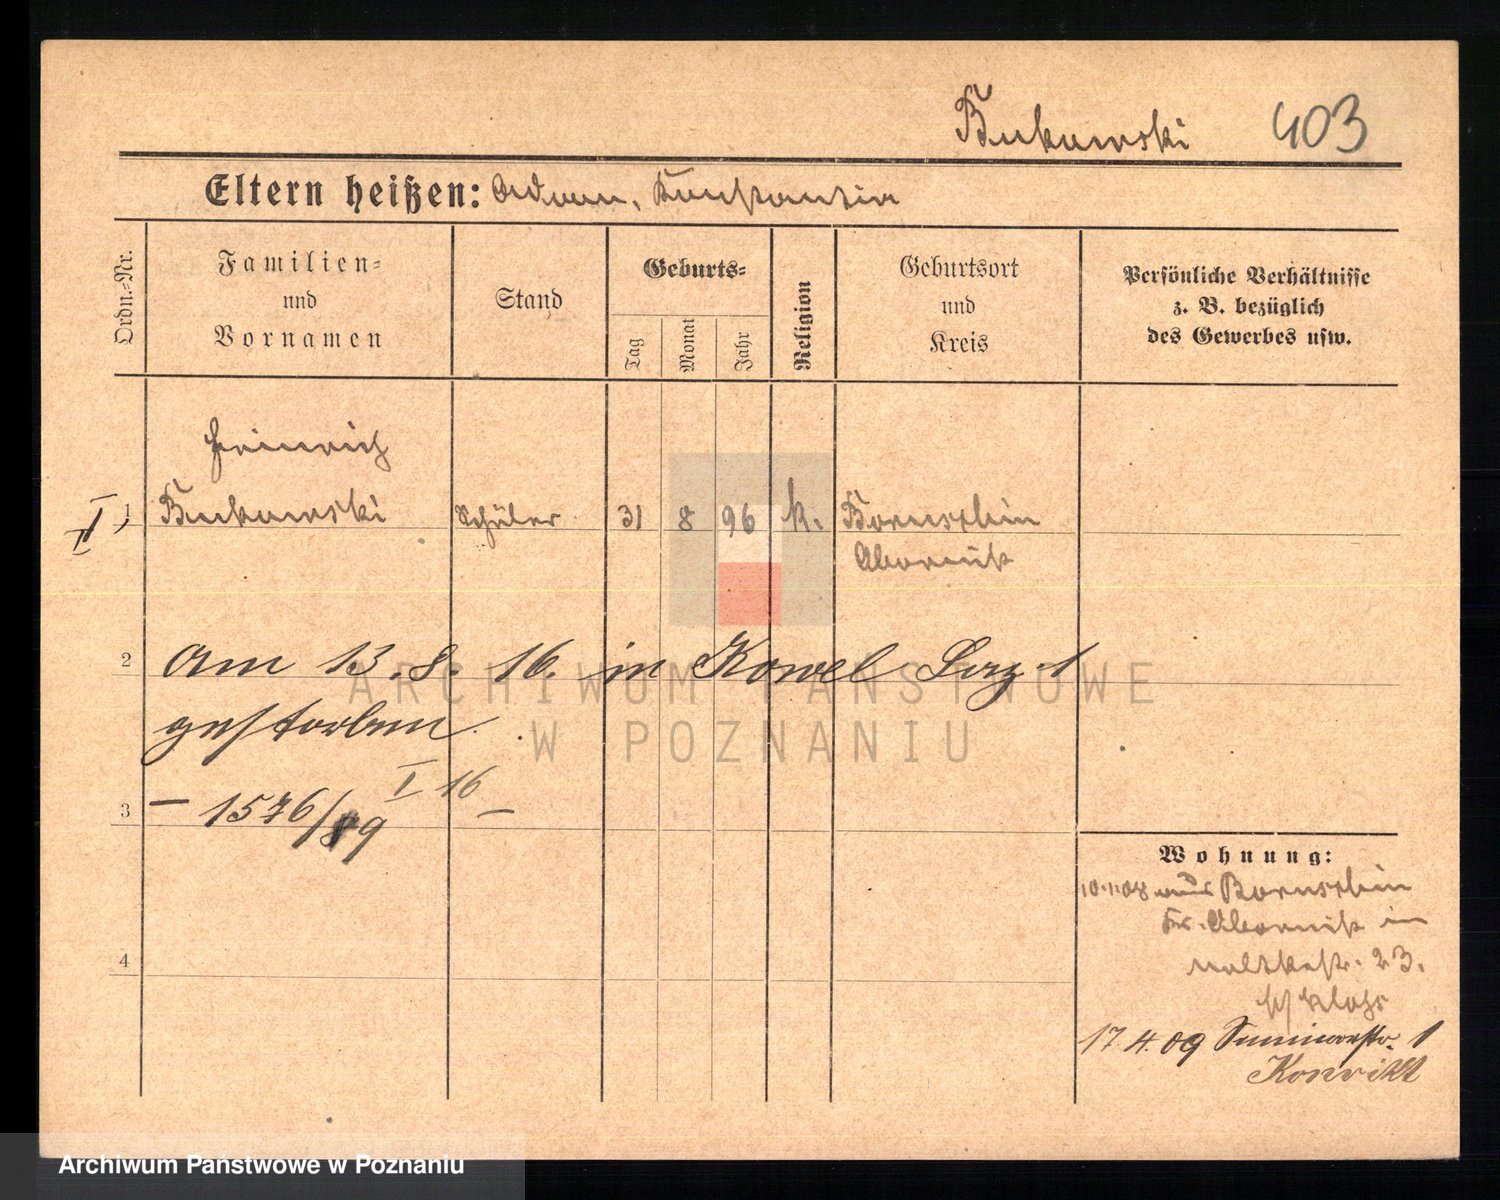 Bukowski 403
Eltern heißen: Adam, Konstantin
Ordn.-Nr.
Familien=
und
Vornamen
Stand
Geburts=
Tag
Monat
Jahr
Religion
Geburtsort
und
Kreis
Persönliche Verhältnisse
z. B. bezüglich
des Gewerbes usw.
Heinrich
1 Bukowski Schüler 31 8 96 k. Bornstein
Obornik
2 Am 13. 8. 16. in Kowel Laz 1
gestorben.
I 16
3 — 1576/89 —
4
Wohnung:
10.1.08 aus Bornstein
Kr. Obornik in
Moltkestr. 23.
17.4.09 Seminarstr. 1
Konvikt
ARCHIWUM PAŃSTWOWE
W POZNANIU
Archiwum Państwowe w Poznaniu